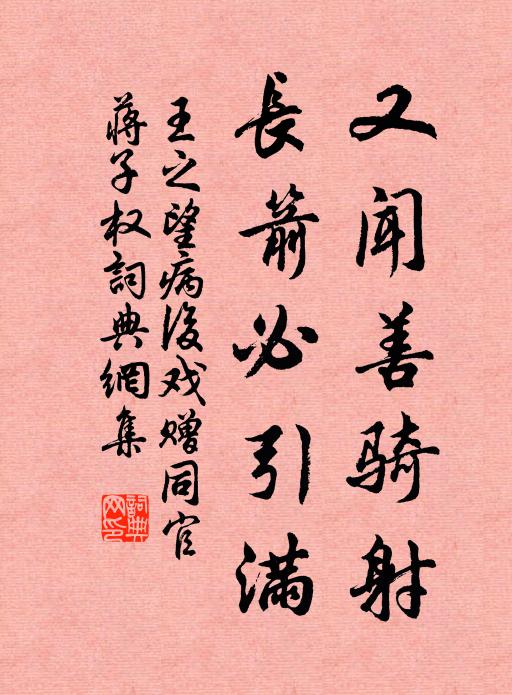 又闻善骑射
長箭必引满
王之望病後戏赠同官
蒋子权詞典網集
詞典网印